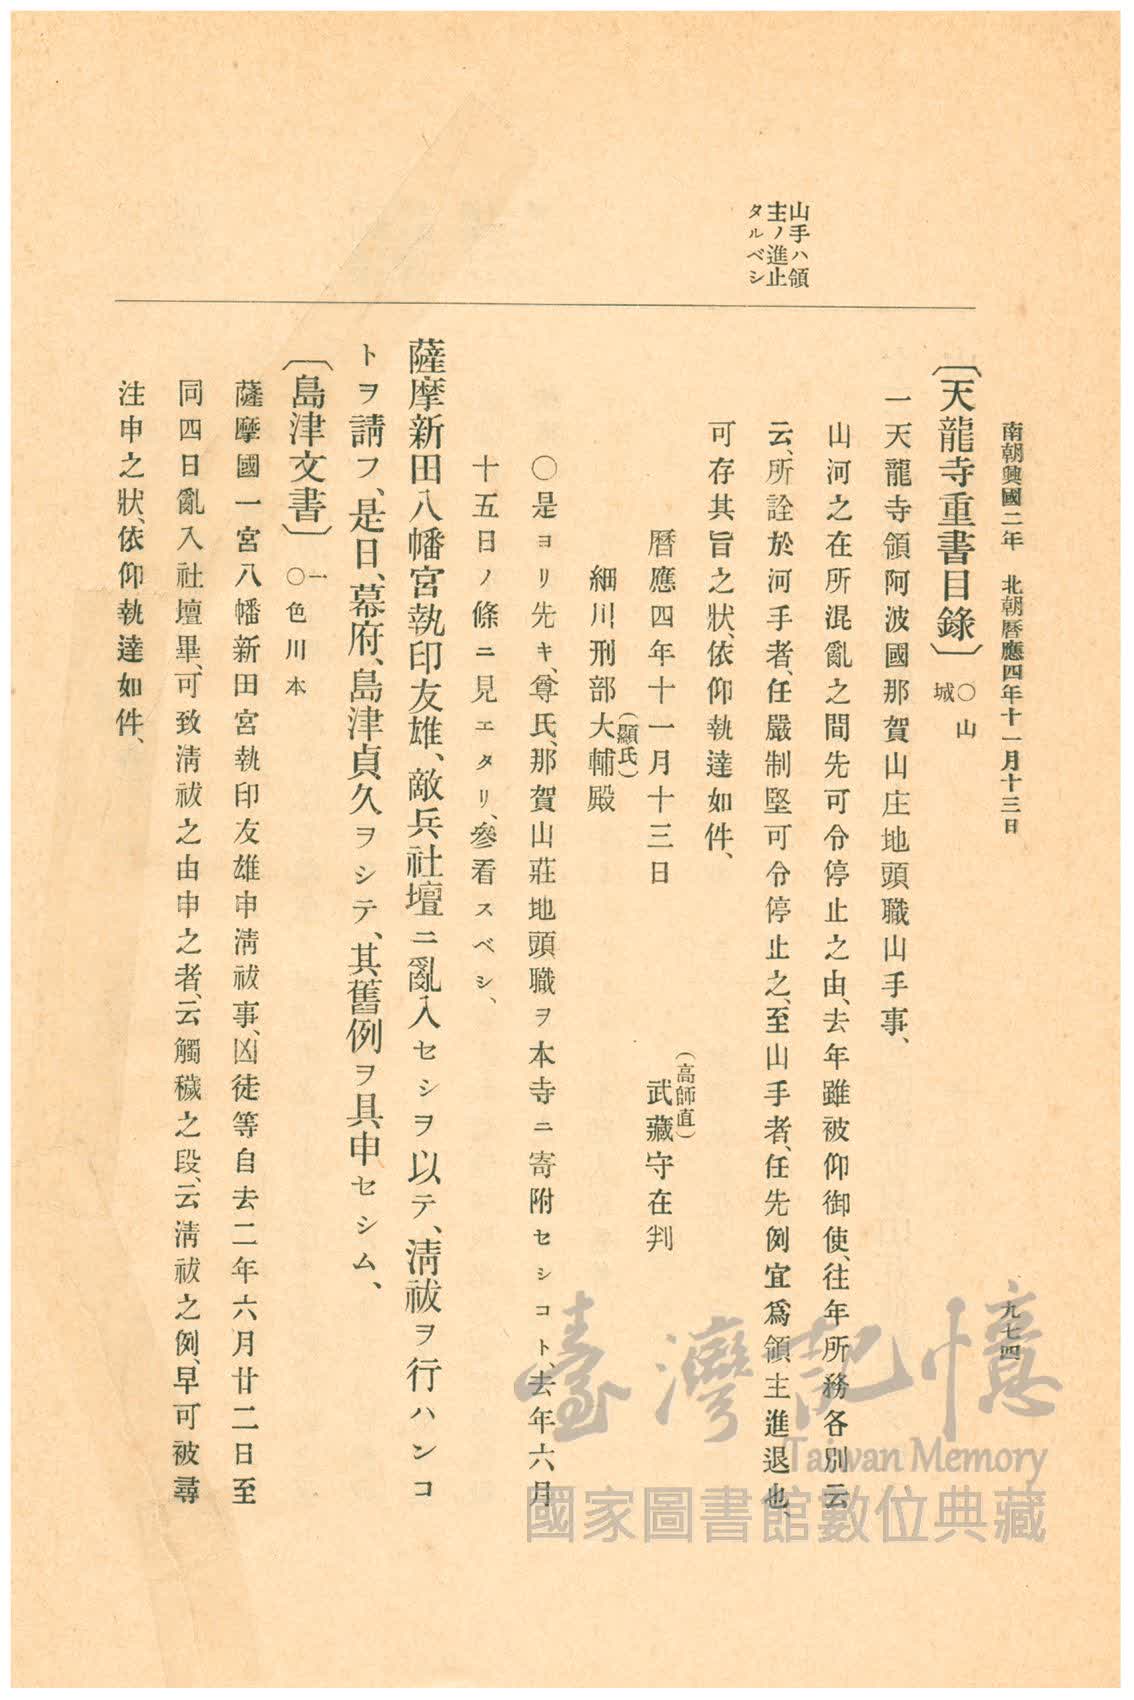 南朝興國二年　北朝曆應四年十一月十三日
九七四
山手ハ領
主ノ進止
タルベシ
〔天龍寺重書目錄〕○山城
一天龍寺領阿波國那賀山庄地頭職山手事、
山河之在所混亂之間先可令停止之由、去年雖被仰御使、往年所務各別云
云、所詮於河手者、任嚴制堅可令停止之、至山手者、任先例宜爲領主進退也、
可存其旨之狀、依仰執達如件、
曆應四年十一月十三日
(高師直)
武藏守在判
(顯氏)
細川刑部大輔殿
○是ヨリ先キ、尊氏、那賀山莊地頭職ヲ本寺ニ寄附セシコト、去年六月
十五日ノ條ニ見エタリ、參看スベシ、
薩摩新田八幡宮執印友雄、敵兵社壇ニ亂入セシヲ以テ、淸祓ヲ行ハンコ
トヲ請フ、是日、幕府、島津貞久ヲシテ、其舊例ヲ具申セシム、
〔島津文書〕○一色川本
薩摩國一宮八幡新田宮執印友雄申淸祓事、凶徒等自去二年六月廿二日至
同四日亂入社壇畢、可致淸祓之由申之者、云觸穢之段、云淸祓之例、早可被尋
注申之狀、依仰執達如件、
臺灣記憶
Taiwan Memory
國家圖書館數位典藏